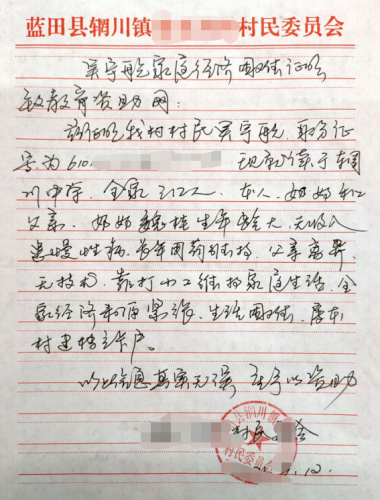 蓝田县辋川镇 村民委员会
吴宇航家庭经济困难证明
致教育资助网:
兹证明我村村民吴宇航,身份证
号为610 现就读于辋
川中学,全家三口人,本人、奶奶和
父亲。奶奶 年龄大,无收入
患慢性病,长年用药维持,父亲离异
无技术,靠打小工维持家庭生活,全
家经济来源紧张,生活困难,属本
村建档立卡户。
以上信息真实无误 请予以资助
村民委会
县辋川镇
村民委员会
.12.